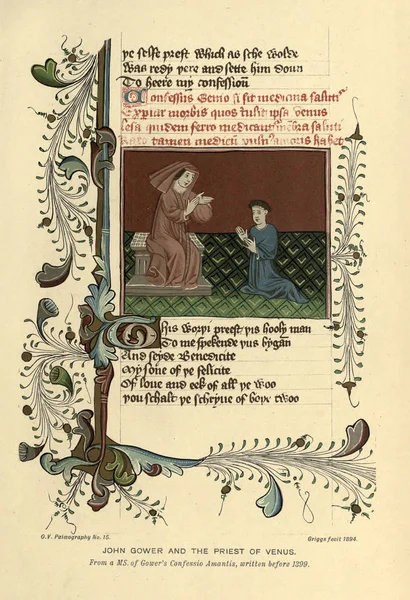 ye selfe prest which as sche wolde
Was redy yere and sette him doun
To heere my confessioun
Confessus Genio si sit medicina salutis
Expiar morbis quos tulit ipsa Venus
lesa quidem ferro medicantur membra saluti
Raro tamen medicum vulnus amoris habet
This worþi preest þis hooly man
To me spekende þus bygan
And seyde Benedicite
My sone of þe felicite
Of loue and eek of all þe woo
Þou schalt þe schryue of boþe twoo
O.V. Palæography No. 15.
Griggs facit 1894.
JOHN GOWER AND THE PRIEST OF VENUS.
From a MS. of Gower's Confessio Amantis, written before 1399.